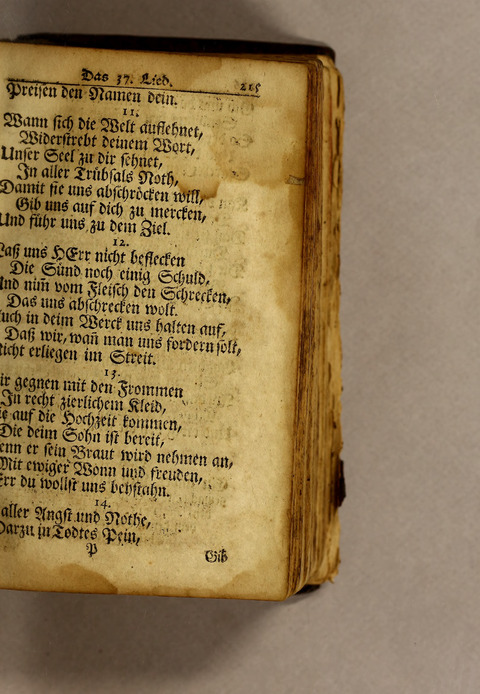 Das 37. Lied. 215
Preisen den Namen dein.
11.
Wann sich die Welt auflehnet,
Widerstrebt deinem Wort,
Unser Seel zu dir sehnet,
In aller Trübsals Noth,
Damit sie uns abschröcken will,
Gib uns auf dich zu mercken,
Und führ uns zu dem Ziel.
12.
Laß uns HErr nicht beflecken
Die Sünd noch einig Schuld,
Und nim̃ vom Fleisch den Schrecken,
Das uns abschrecken wolt.
Auch in deim Werck uns halten auf,
Daß wir, wañ man uns fordern solt,
Nicht erliegen im Streit.
13.
ir gegnen mit den Frommen
In recht zierlichem Kleid,
ie auf die Hochzeit kommen,
Die deim Sohn ist bereit,
enn er sein Braut wird nehmen an,
Mit ewiger Wonn und freuden,
Err du wollst uns beystahn.
14.
aller Angst und Nöthe,
Darzu in Todtes Pein,
P Gib